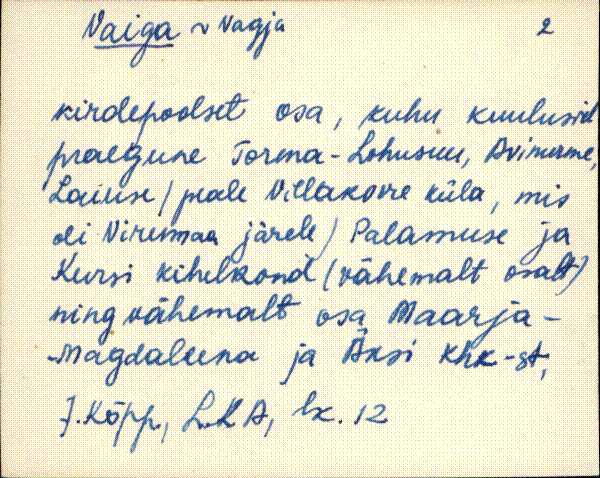 Vaiga ~ Vagja 2
kirdepoolset osa, kuhu kuulusid
praegune Torma-Lohusuu, Avinurme,
Laiuse (peale Villakovre küla, mis
oli Virumaa järele) Palamuse ja
Kursi kihelkond (vähemalt osalt)
ning vähemalt osa Maarja-
-Magdaleena ja Äksi khk-st,
J. Kõpp, LKA, lk. 12